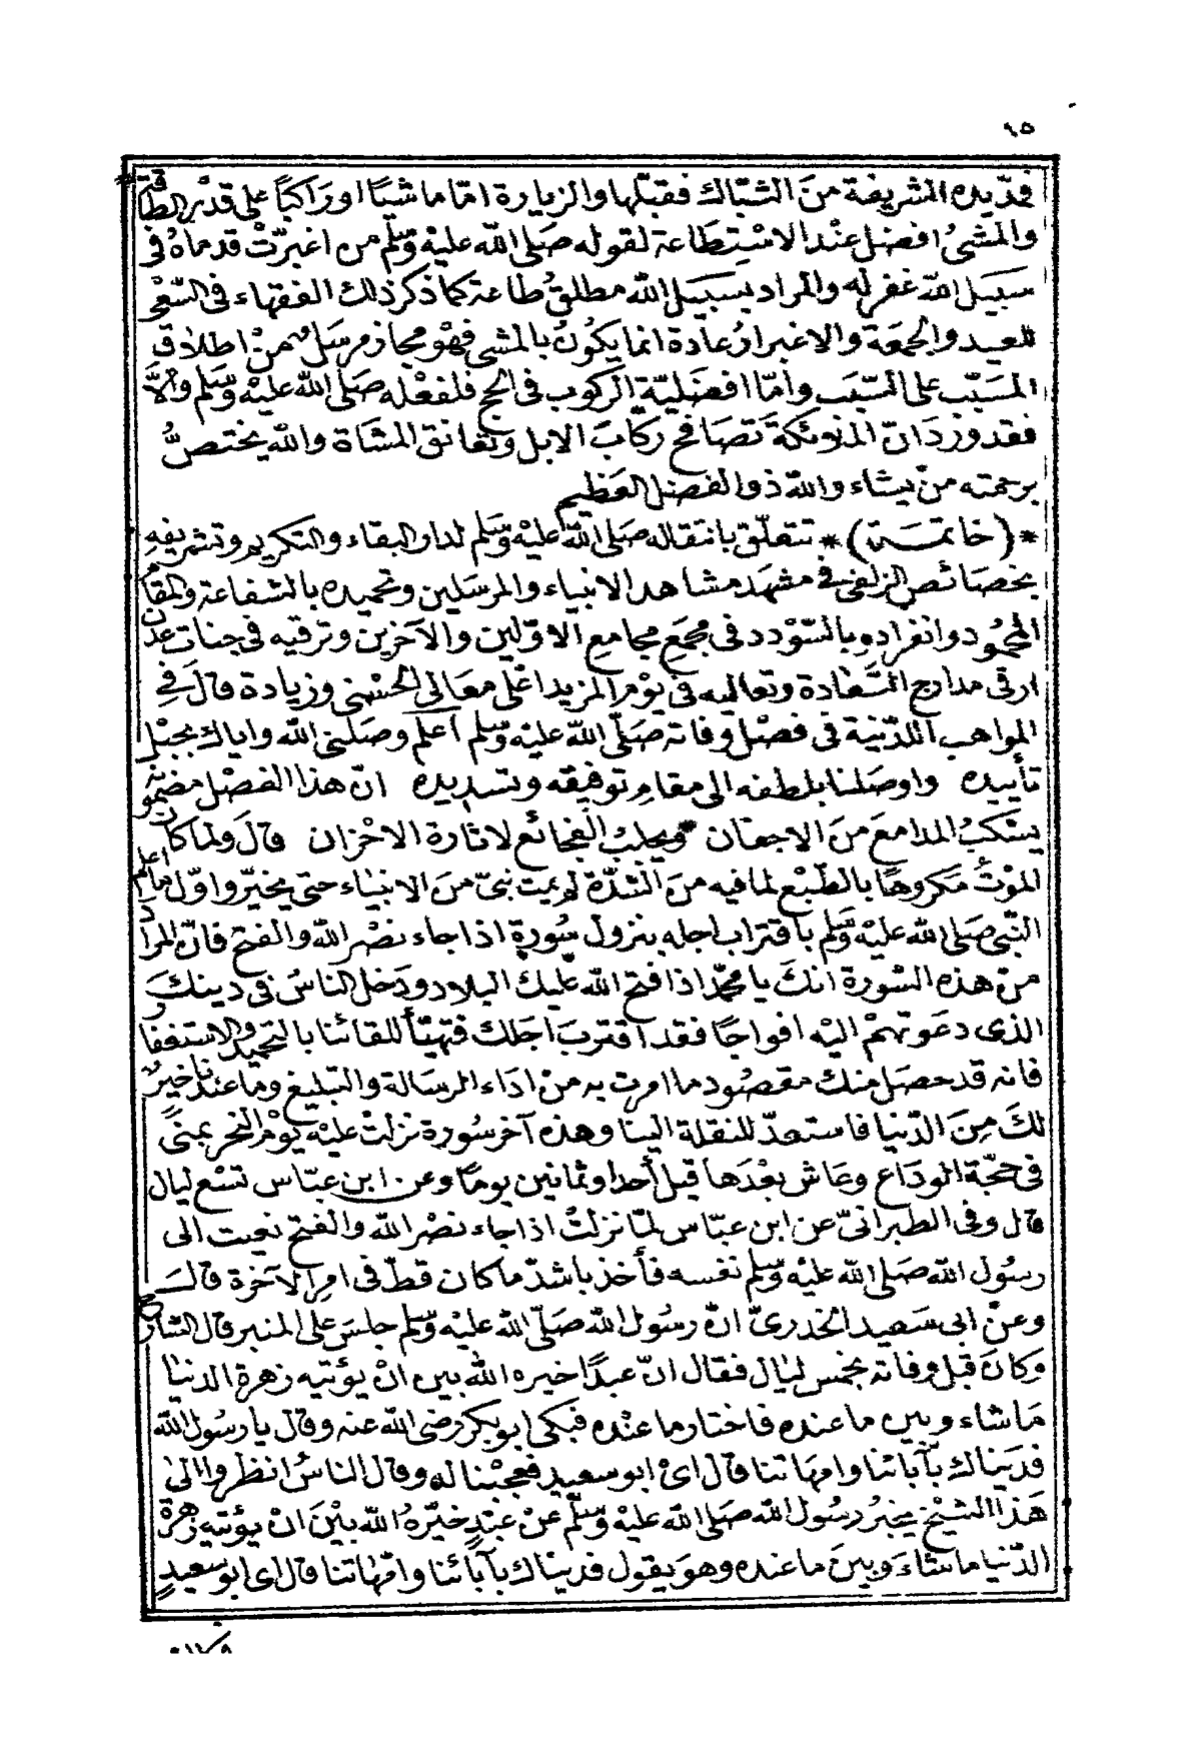 ٩٥
فمدّ يده الشريفة منَ الشبّاك فقبّلها والزيارة امّا ماشيًا اورَاكبًا على قدْر الطاقة
والمشىُ افضل عنْد الاسْتِطَاعة لقوله صَلى اللّه عليْه وَسَلّم من اغبرّتْ قدماهُ فى
سَبيل اللّه غفر له والمراد بسبيل اللّه مطلقُ طاعة كما ذكر ذلك الفقهاء فى السّعْى
للعيد والجمعَة والاغبرارُ عادة انما يكوُن بالمشى فهوَ مجاز مرسَل منْ اطلاق
المسَبّب على السّبَب وأمّا افضليّة الركوب فى الحج فلفعْله صَلى اللّه عليْه وَسَلم والّا
فقد ورَدَ انّ الملائكة تصَافح ركابَ الابل وتعانق المشاة واللّه يختصُّ
برحمته منْ يشاء واللّه ذو الفضل العَظيم
*( خاتمَة )* تتعلّق بانتقاله صَلى اللّه عليْه وَسَلم لدار البقاء والتكريم وتشريفهِ
بخصَائص الزلفى فى مشهَد مشاهد الانبياء والمرسَلين وتحميده بالشفاعة والمقام
المحمُود وانفراده بالسّوْدد فى مجمَع مجامع الاوّلين والآخرين وترقيه فى جنات عدْن
ارقى مدارج السّعَادة وتعاليه فى يوْم المزيد اعْلى معَالى الحسْنى وزيادة قالَ فى
المواهب اللدّنية فى فصْل وفاته صَلّى اللّه عليْه وَسَلم اعْلم وصَلنى اللّه واياك بحبْل
تأييده واوصَلنا بلطفه الى مقامِ توفيقه وتسْديده انّ هذا الفصْل مضمونه
يسْكبُ المدامعَ منَ الاجفان ويجلبُ الفجائع لاثارة الاحْزان قالَ ولما كان
الموْتُ مكروهًا بالطّبْع لما فيه منَ الشدّة لم يمت نبىّ منَ الانبياء حتى يخيّر واوّل ما اعلم
النّبى صَلى اللّه عليْه وَسَلم باقتراب اجله بنزول سُورة اذا جاء نصْر اللّه والفتح فانّ المراد
منْ هذه السّورة انكَ يا محمّد اذا فتح اللّه عليك البلاد ودَخل الناسُ فى دينكَ
الذى دعَوتهمْ اليْه افواجًا فقد اقتربَ اجَلك فتهيّأ للقائنا بالتحميد والاستغفار
فانه قد حصَل منك مقصُود ما امرت به منْ ادَاء الرسَالة والتبليغ وما عندنا خيرٌ
لكَ مِنَ الدّنيا فاستعدّ للنقلة الينا وهذه آخر سُورة نزلتْ عليْه يَوْم النحر بمنًى
فى حجّة الودَاع وعَاش بعْدَها قيل أحدا وثمانين يومًا وعن ابن عبّاس تسْع ليال
قال وفى الطبرانىّ عن ابن عبّاس لمّا نزلتْ اذا جاء نصْر اللّه والفتح نعيت الى
رسُول اللّه صَلى اللّه عليْه وَسَلم نفسه فأخذ باشدّ ما كان قطّ فى امر الآخرة قالَ
وعنْ ابى سَعيد الخدرىّ انّ رسُول اللّه صَلّى اللّه عليْه وَسَلم جلسَ على المنبر قال الشارح
وكانَ قبل وفاته بخمس ليال فقال انّ عبدًا خيره اللّه بين انْ يؤتيه زهرة الدنيا
مَا شاء وبين ما عنده فاختار ما عنْده فبكى ابو بكر رضى اللّه عنه وقال يا رسُول اللّه
فديناك بآبائنا وامهاتنا قال اىْ ابو سعيد فعجبْنا له وقال الناسُ انظروا الى
هَذا الشيْخ يخبرُ رسُول اللّه صَلى اللّه عليْه وَسَلّم عنْ عبْدٍ خيّرهُ اللّه بيْنَ انْ يؤتيه زهْرة
الدّنيا ما شاءَ وبينَ ما عنده وهوَ يقول فديناك بآبائنا وامّهاتنا قال اى ابو سعيدٍ